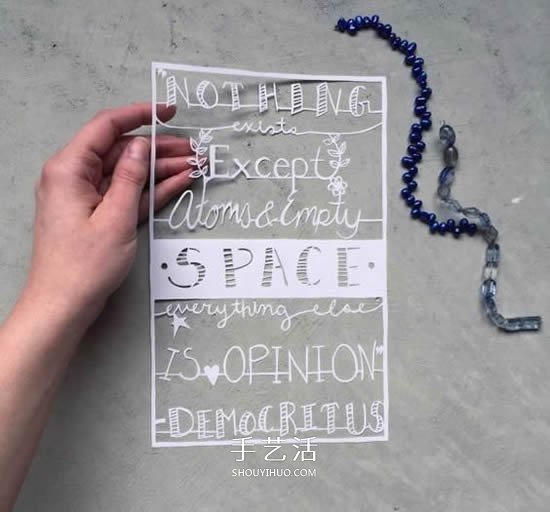 "NOTHING
exists
Except
Atoms & Empty
SPACE
everything else
IS OPINION"
-DEMOCRITUS
手艺活
SHOUYIHUO.COM